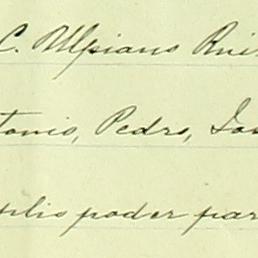 C. Ulpiano Rui
tonio, Pedro, Jos
plio poder par